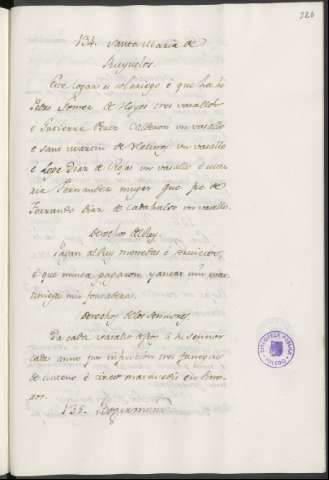 320
134. Santa Maria de
Ruyuelos.
Este logar es solariego é que ha hi
Pero Gomez de Hoyos tres vasallos
é Gutierre Perez Calderon un vasallo
é Sant Martin de un vasallo
é Lope Diaz de Rojas un vasallo é Maria
Fernandez muger que fue de
Ferrando Diaz de un vasallo.
Derechos del Rey.
Pagan al Rey monedas é servicios,
é que nunca pagaron yantar nin mar
tiniega nin fonsadera.
Derechos de los Señores.
Da cada vasallo à su señor
cada anno por infurcion tres
de é cinco maravedis en dine
ros.
135.
BIBLIOTECA PUBLICA
TOLEDO